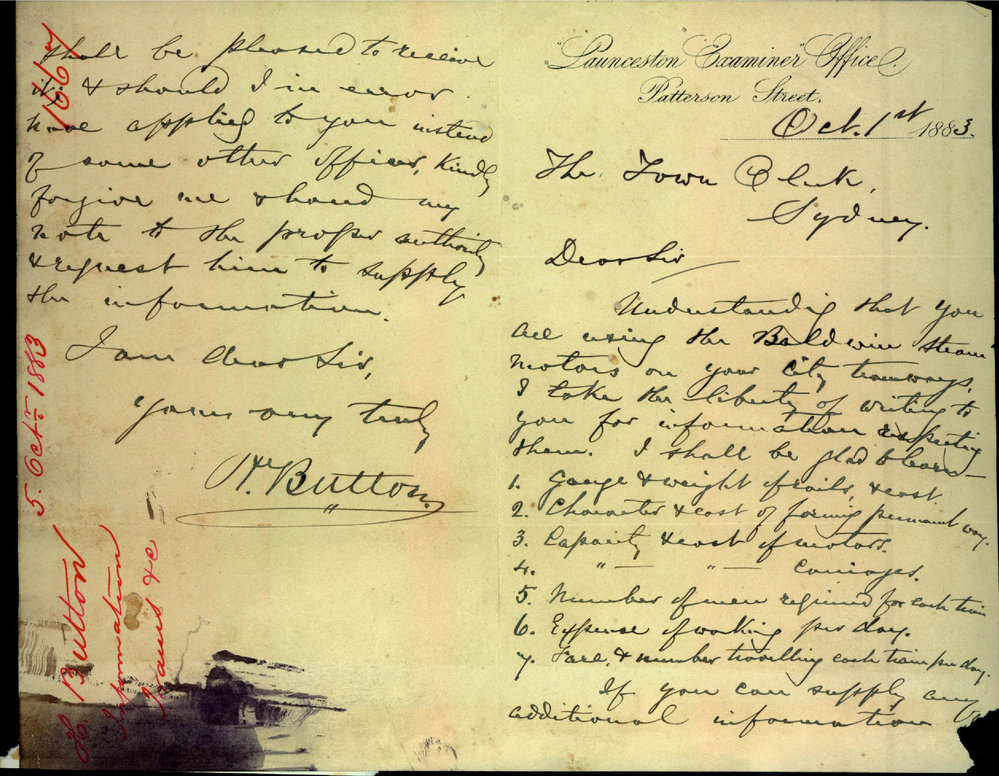 "Launceston Examiner" Office.
Patterson Street.
Oct. 1st 1883.
The Town Clerk,
Sydney.
Dear Sir
Understanding that you
are using the Baldwin steam
motors on your city tramways,
I take the liberty of writing to
you for information respecting
them. I shall be glad to learn
1. Gauge & weight of rails, & cost.
2. Character & cost of forming permanent way.
3. Capacity & cost of motors.
4. " — " — Carriages.
5. Number of men required for each train
6. Expense of working per day.
7. Fare, & number travelling each train per day.
If you can supply any
additional information
shall be pleased to receive
it; & should I in error
have applied to you instead
of some other officer, kindly
forgive me & hand my
note to the proper authority
& request him to supply
the information.
I am dear Sir,
Yours very truly
H. Button
1667
5. Octr. 1883
H. Button
Information
Trams &c